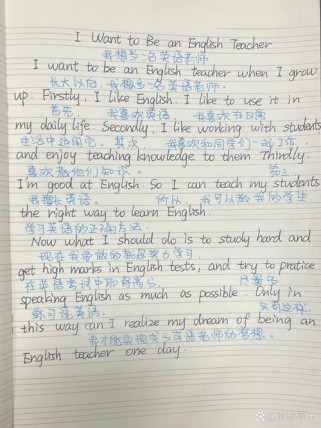 I Want to Be an English Teacher
我想当一名英语老师
I want to be an English teacher when I grow
长大以后,我想当一名英语老师.
up. Firstly, I like English. I like to use it in
首先, 我喜欢英语 我喜欢在日常
my daily life. Secondly, I like working with students
生活中运用它. 其次, 我喜欢和同学们一起工作
and enjoy teaching knowledge to them Thindly.
喜欢教他们知识. 第三
I'm good at English. So I can teach my students
我擅长英语. 所以 我可以教我的学生
the right way to learn English.
学习英语的正确方法.
Now what I should do is to study hard and
现在我要做的就是努力学习.
get high marks in English tests, and try to pratice
在英语考试中取得高分. 尽量多
speaking English as much as possible. Only in
练习说英语. 只有这样
this way can I realize my dream of being an
我才能实现成为英语老师的梦想.
English teacher one day.